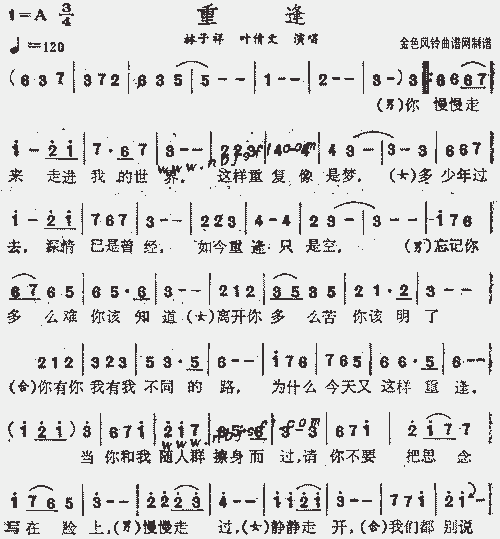 重 逢
1=A 3/4
♩=120
林子祥 叶倩文 演唱
金色风铃曲谱网制谱
(6 3 7 | 3 7 2 | 6 3 5 | 5 - - | 1 - - | 2 - - | 3 - ) 3 | 6 6 6 7 |
(男)你 慢慢走
i - 2 i | 7 · 6 7 | 3 - - | 2 2 3 | 4 - 4 | 4 3 - | 3 - 3 | 6 6 7 |
来 走进 我 的世 界, 这样重 复 像 是梦, (女)多 少年过
i - 2 i | 7 6 7 | 3 - - | 2 2 3 | 4 - 4 | 3 - - | 3 - - | i 7 6 |
去, 深情 已是曾 经, 如今重 逢 只 是空, (男)忘记你
6 7 6 5 | 6 5 · 6 | 3 - - | 2 1 2 | 3 5 3 5 | 2 1 · 2 | 3 - - |
多 么难 你该 知 道 (女)离开你 多 么苦 你该 明 了
2 1 2 | 3 2 3 | 5 3 · 5 | 6 - - | i 7 6 | 7 6 5 | 6 6 · 5 | 6 - - |
(合)你有你 我有我 不同 的 路, 为什么 今天又 这样 重 逢,
(i 2 i) 3 | 6 7 i | 2 i 7 | 3 - 3 | 6 7 i | 2 i 7 7 |
当 你和我 随人群 擦身 而 过,请 你不要 把思 念
i 7 6 5 | 3 - 3 | 2 2 2 3 | 2 - 4 | i i 2 i | 3 - 3 | 7 7 i | 2 i - |
写在 脸 上,(男)慢慢走 过,(女)静静走 开,(合)我们都 别说